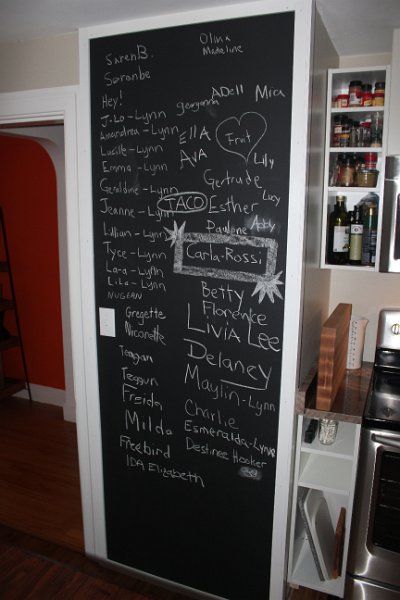 Saren B.
Soronbe
Hey!
J-Lo-Lynn
Amandrea-Lynn
Lucille-Lynn
Emma-Lynn
Geraldine-Lynn
Jeanne-Lynn
Lillian-Lynn
Tyce-Lynn
Lara-Lynn
Lila-Lynn
NUGEAN
Gregette
Nicorette
Teagan
Teagun
Freida
Milda
Freebird
IDA Elizabeth
Olivia
Madeline
ADell
Mica
georgianna
Ella
AVA
Fruit
Lily
Gertrude
Lucy
TACO
Esther
Abby
Paulene
Carla-Rossi
Betty
Florence
LiViA Lee
Delaney
Maylin-Lynn
Charlie
Esmeralda-Lynn
Destinee Hooker